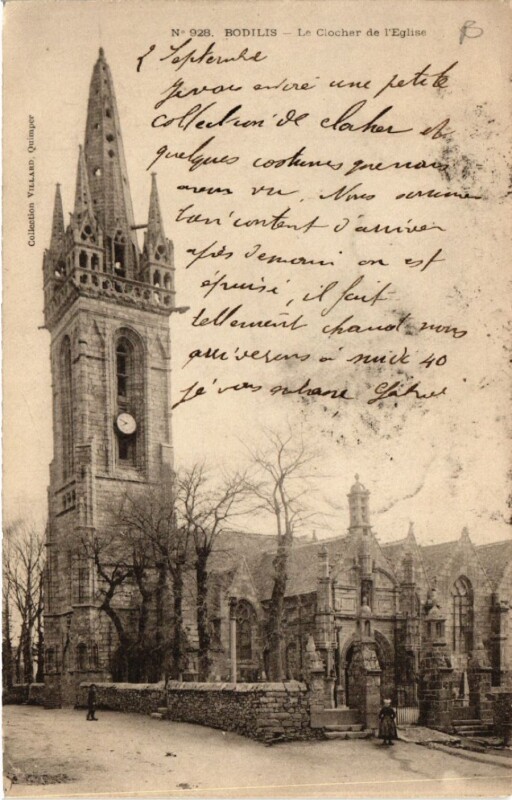 Nº 928. BODILIS – Le Clocher de l'Eglise
B
Collection VILLARD, Quimper
2 Septembre
Je vous envoie une petite
collection de clocher et
quelques costumes que nous
avons vu. Nous sommes
bien content d'arriver
après demain on est
épuisé, il fait
tellement chaud nous
arriverons à midi 40
je vous embrasse Gabriel